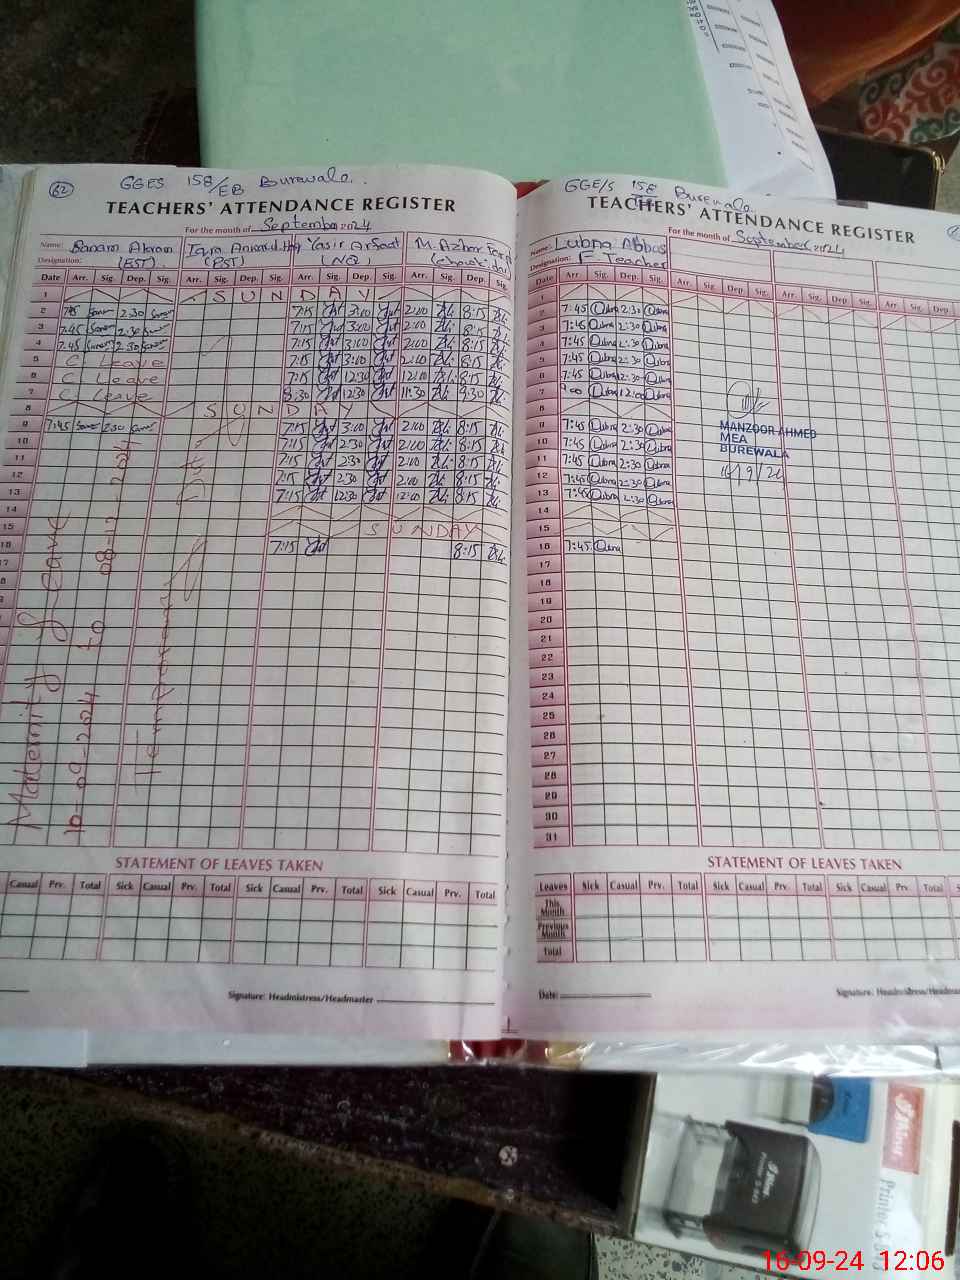 62
GGES 158/EB Burewala.
TEACHERS' ATTENDANCE REGISTER
For the month of September 2024
Name: Akram Iqra Yasir Arfaat M. Azhar
Designation: (EST) (PST) (NQ)
Date Arr. Sig. Dep. Sig. Arr. Sig. Dep. Sig. Arr. Sig. Dep. Sig. Arr. Sig. Dep. Sig.
1 SUNDAY
2 2:30 7:15 3:00 2:00 8:15
3 7:45 2:30 7:15 3:00 2:00 8:15
4 7:45 2:30 7:15 3:00 2:00 8:15
5 C. Leave 7:15 3:00 2:00 8:15
6 C. Leave 7:15 12:30 12:00 8:15
7 C. Leave 8:30 12:30 11:30 9:30
8 SUNDAY
9 7:45 2:30 7:15 3:00 2:00 8:15
10 7:15 2:30 2:00 8:15
11 7:15 2:30 2:00 8:15
12 7:15 2:30 2:00 8:15
13 7:15 12:30 12:00 8:15
14
15 SUNDAY
16 7:15 8:15
17
Maternity Leave
10-09-2024 to
STATEMENT OF LEAVES TAKEN
Casual Prv. Total Sick Casual Prv. Total Sick Casual Prv. Total Sick Casual Prv. Total
Signature: Headmistress/Headmaster
GGE/S 158 Burewala
TEACHERS' ATTENDANCE REGISTER
For the month of September 2024
Name: Lubna Abbas
Designation: F. Teacher
Date Arr. Sig. Dep. Sig. Arr. Sig. Dep. Sig. Arr. Sig. Dep. Sig. Arr. Sig. Dep.
1
2 7:45 Lubna 2:30 Lubna
3 7:45 Lubna 2:30 Lubna
4 7:45 Lubna 2:30 Lubna
5 7:45 Lubna 2:30 Lubna
6 7:45 Lubna 2:30 Lubna
7 9:00 Lubna 12:00 Lubna
8
9 7:45 Lubna 2:30 Lubna
10 7:45 Lubna 2:30 Lubna
11 7:45 Lubna 2:30 Lubna
12 7:45 Lubna 2:30 Lubna
13 7:45 Lubna 2:30 Lubna
14
15
16 7:45 Lubna
17
18
19
20
21
22
23
24
25
26
27
28
29
30
31
MANZOOR AHMED
MEA
BUREWALA
16/9/24
STATEMENT OF LEAVES TAKEN
Leaves Sick Casual Prv. Total Sick Casual Prv. Total Sick Casual Prv. Total Sick Casual Prv.
This Month
Previous Month
Total
Date:
Signature: Headmistress/Headmaster
Shiny
Printer S-843
16-09-24 12:06